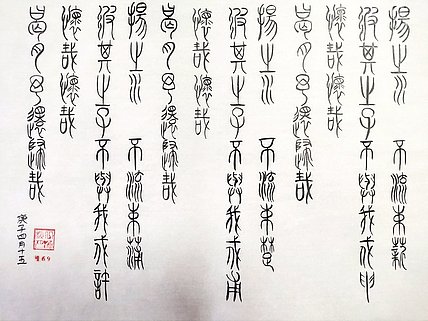 揚之水 不流束薪
彼其之子不與我戍申
懷哉懷哉
曷月予還歸哉
揚之水 不流束楚
彼其之子不與我戍甫
懷哉懷哉
曷月予還歸哉
揚之水 不流束蒲
彼其之子不與我戍許
懷哉懷哉
曷月予還歸哉
庚子四月十五